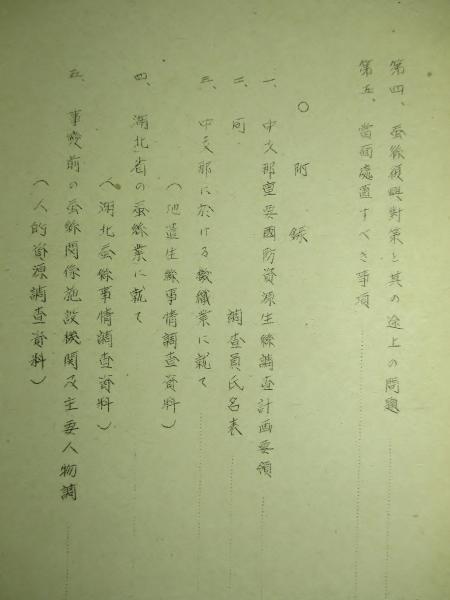 第四、蚕絲復興對策と其の途上の問題
第五、當面處置すべき事項
○附録
一、中支那重要國防資源生絲調査計画要領
二、同 調査員氏名表
三、中支那に於ける機織業に就て
(地遣生絲事情調査資料)
四、湖北省の蚕絲業に就て
(湖北蚕絲事情調査資料)
五、事變前の蚕絲関係施設機関及主要人物調
(人的資源調査資料)